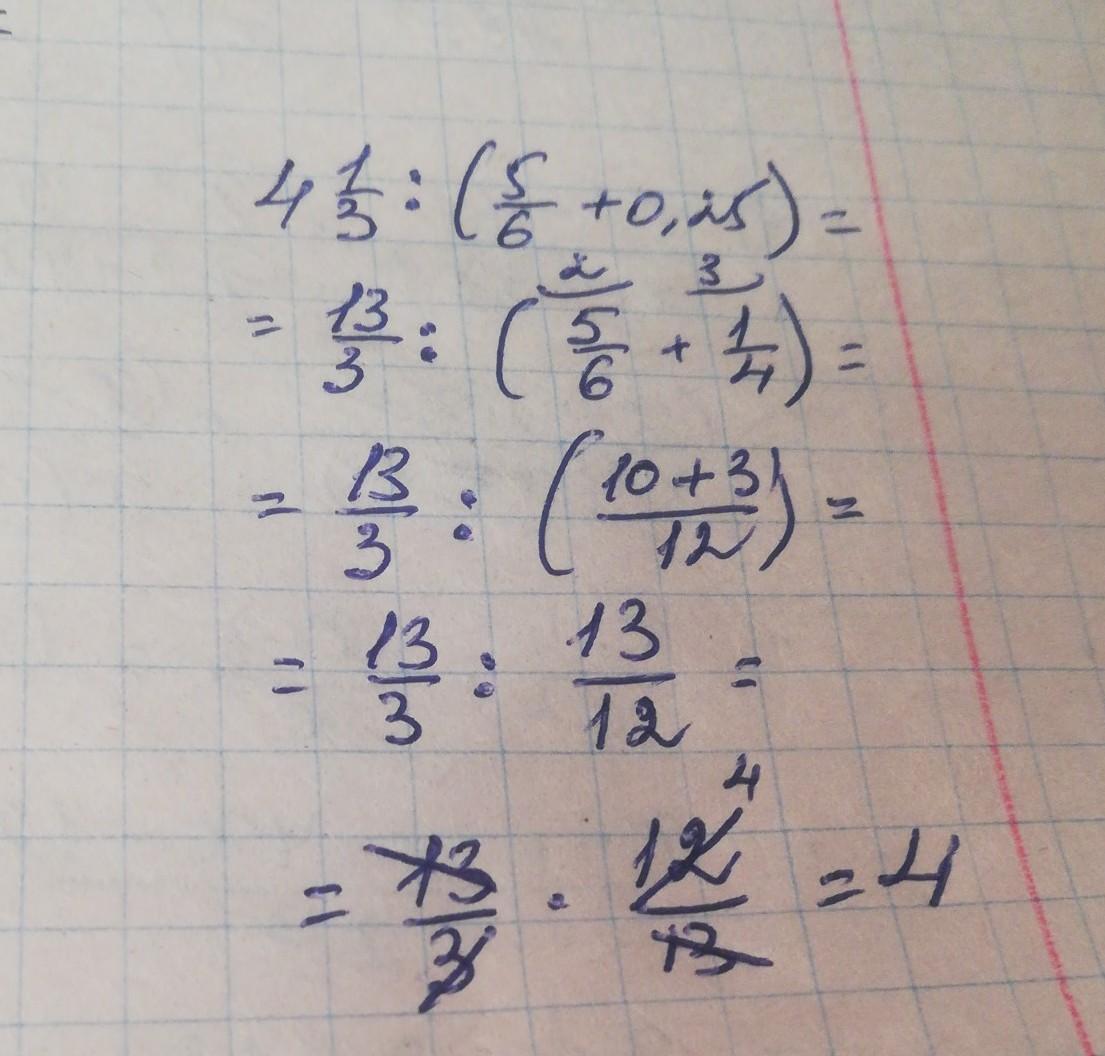 4 1/3 : (5/6 + 0,25) =
2 3
= 13/3 : (5/6 + 1/4) =
= 13/3 : ((10+3)/12) =
= 13/3 : 13/12 =
4
= 13/3 · 12/13 = 4